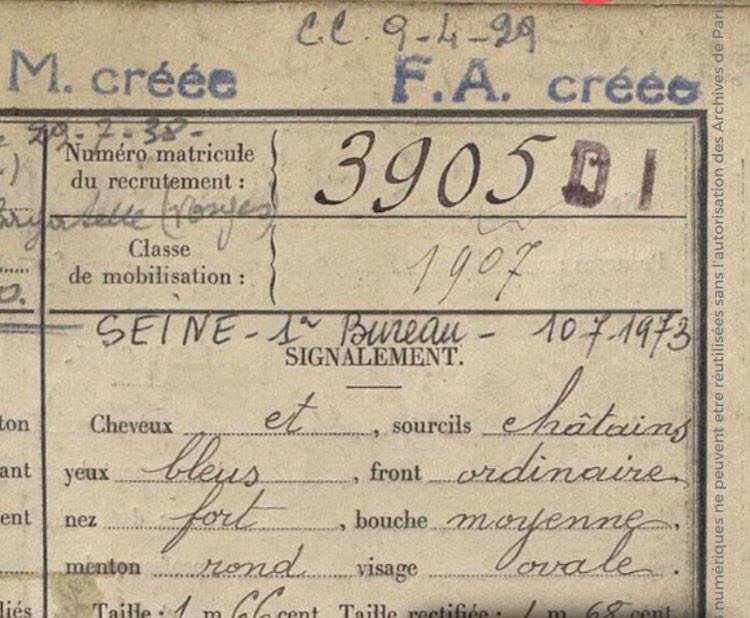 C.C. 9-4-29
M. créée F.A. créée
29-7-38-
Numéro matricule
du recrutement : 3905 D I
(Vosges)
Classe
de mobilisation : 1907
SEINE - 1er Bureau - 10-7-1973
SIGNALEMENT.
Cheveux et, sourcils châtains
yeux bleus, front ordinaire,
nez fort, bouche moyenne,
menton rond visage ovale.
Taille : 1 m 66 cent. Taille rectifiée : 1 m 68 cent
ton
ant
ent
diés
s numériques ne peuvent etre réutilisées sans l'autorisation des Archives de Pari